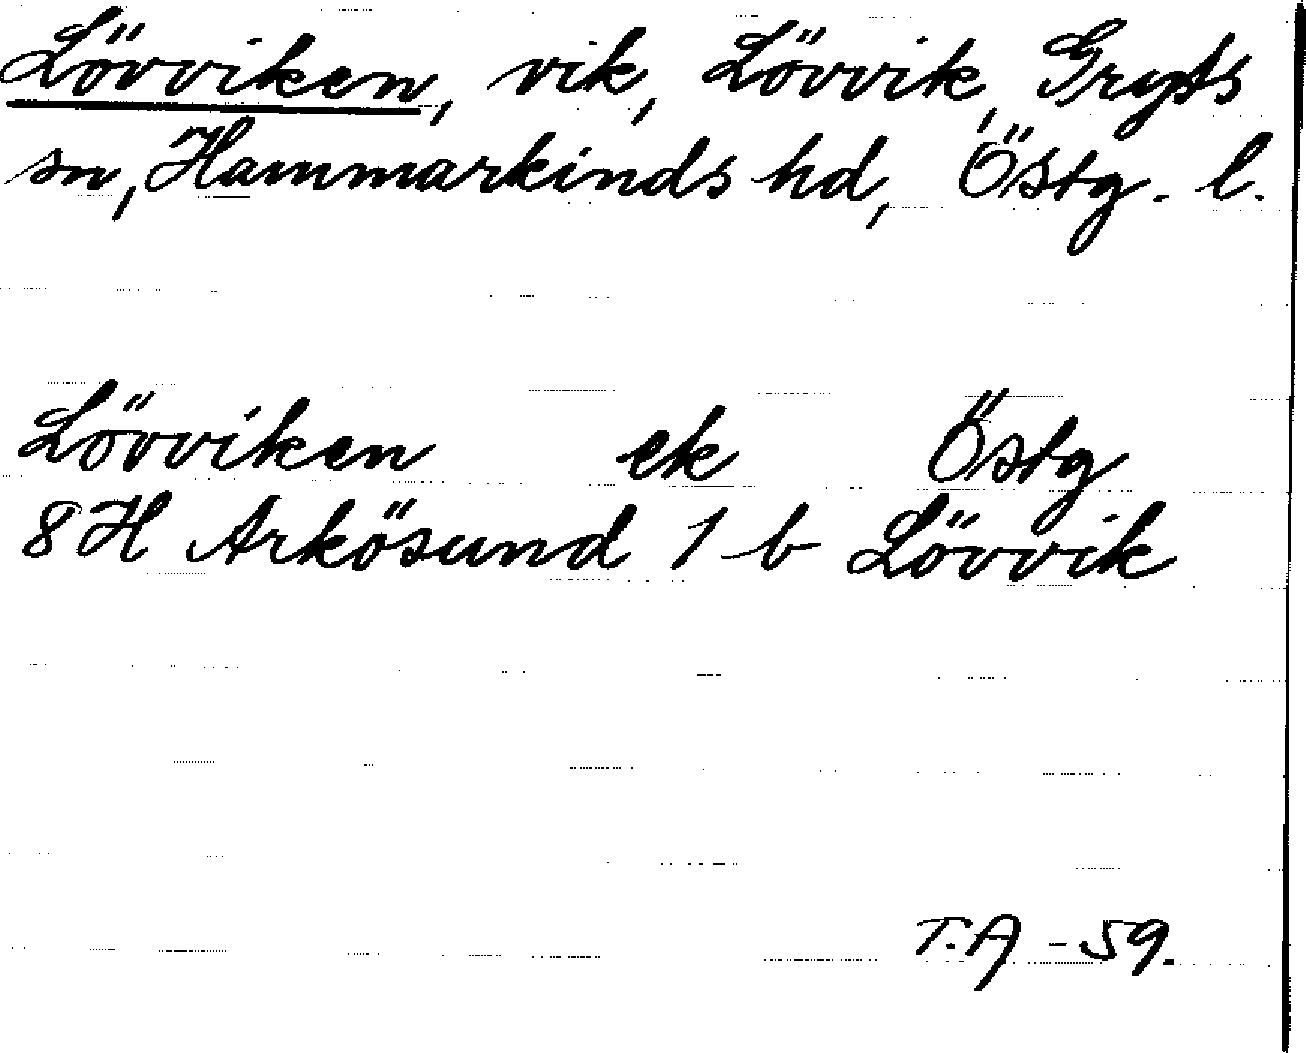 Lövviken, vik, Lövvik, Gryts
sn, Hammarkinds hd, Östg. l.
Lövviken ek Östg
8H Arkösund 1 b Lövvik
T.A -59.